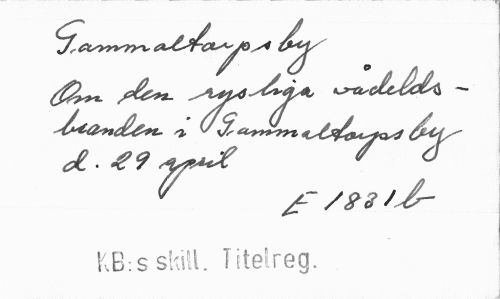 Gammaltorpsby
Om den rysliga vådelds-
branden i Gammaltorpsby
d. 29 april
E 1831 b
KB:s skill. Titelreg.